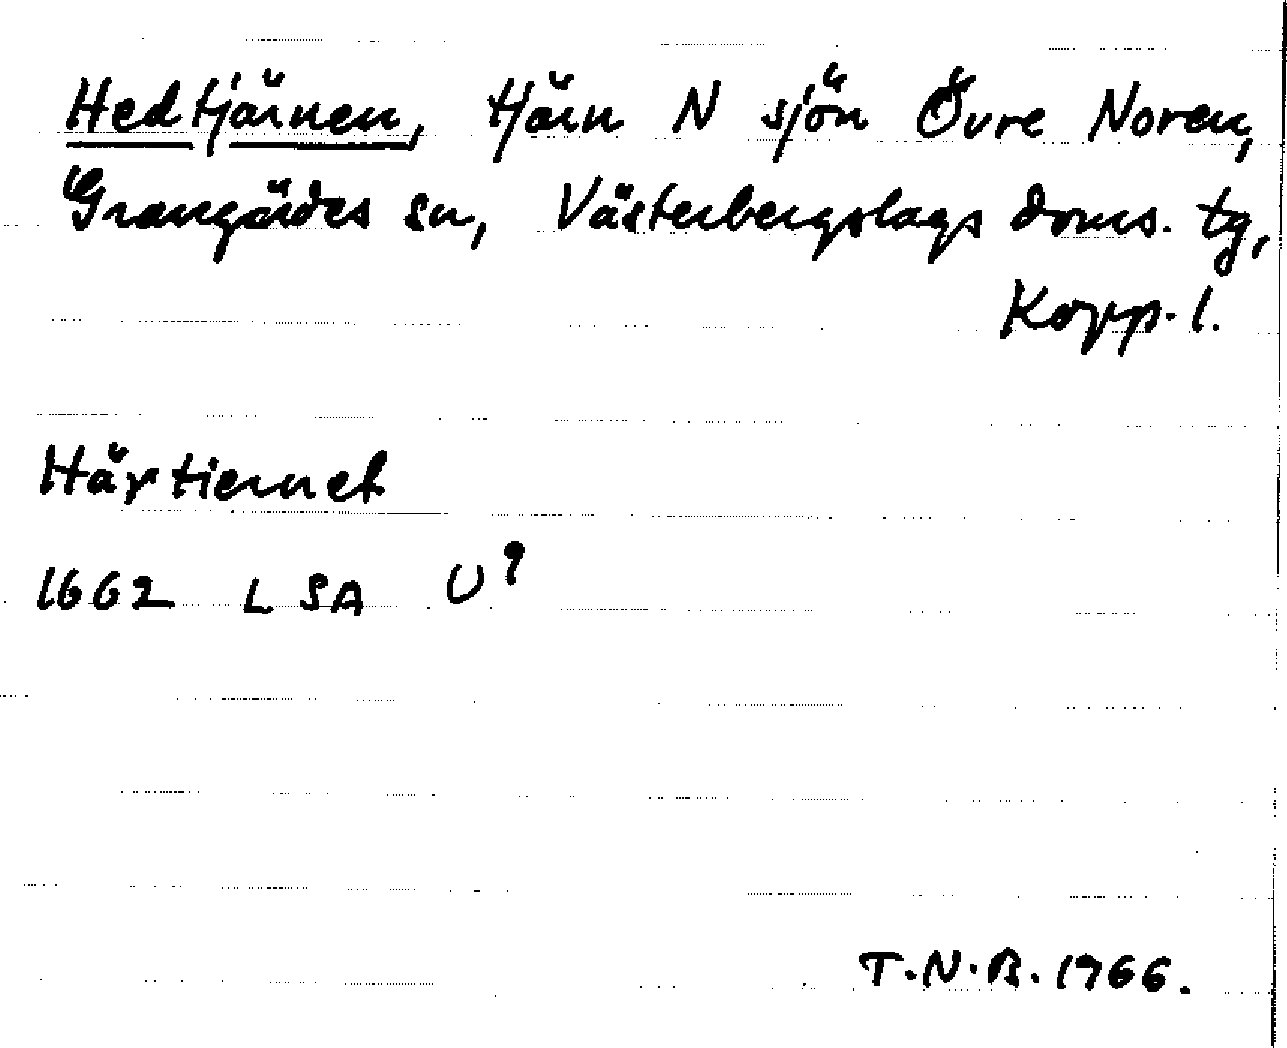 Hedtjärnen, tjärn N sjön Övre Noren,
Grangärdes sn, Västerbergslags doms. tg,
Kopp. l.
Härtiernet
1662 LSA U9
T.N.B. 1966.